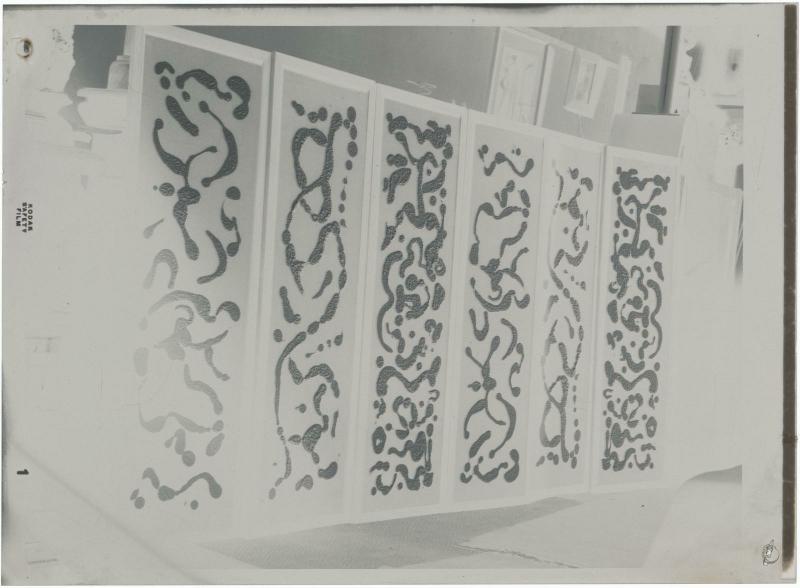 KODAK
SAFETY
FILM
1